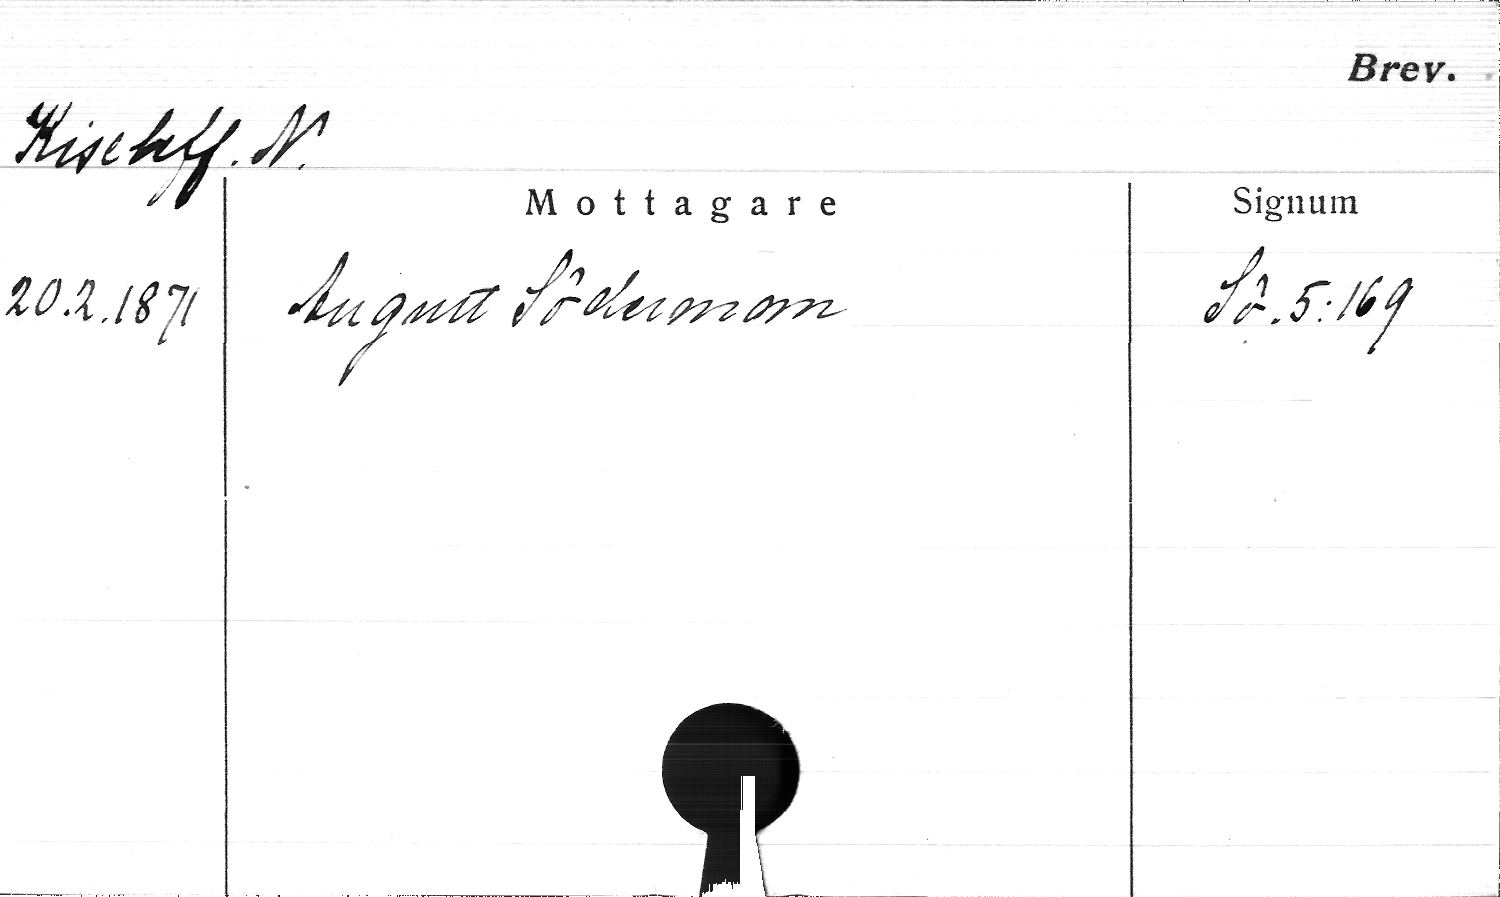 Brev.
Kischoff. N.
Mottagare Signum
20.2.1871 August Söderman Sö. 5:169